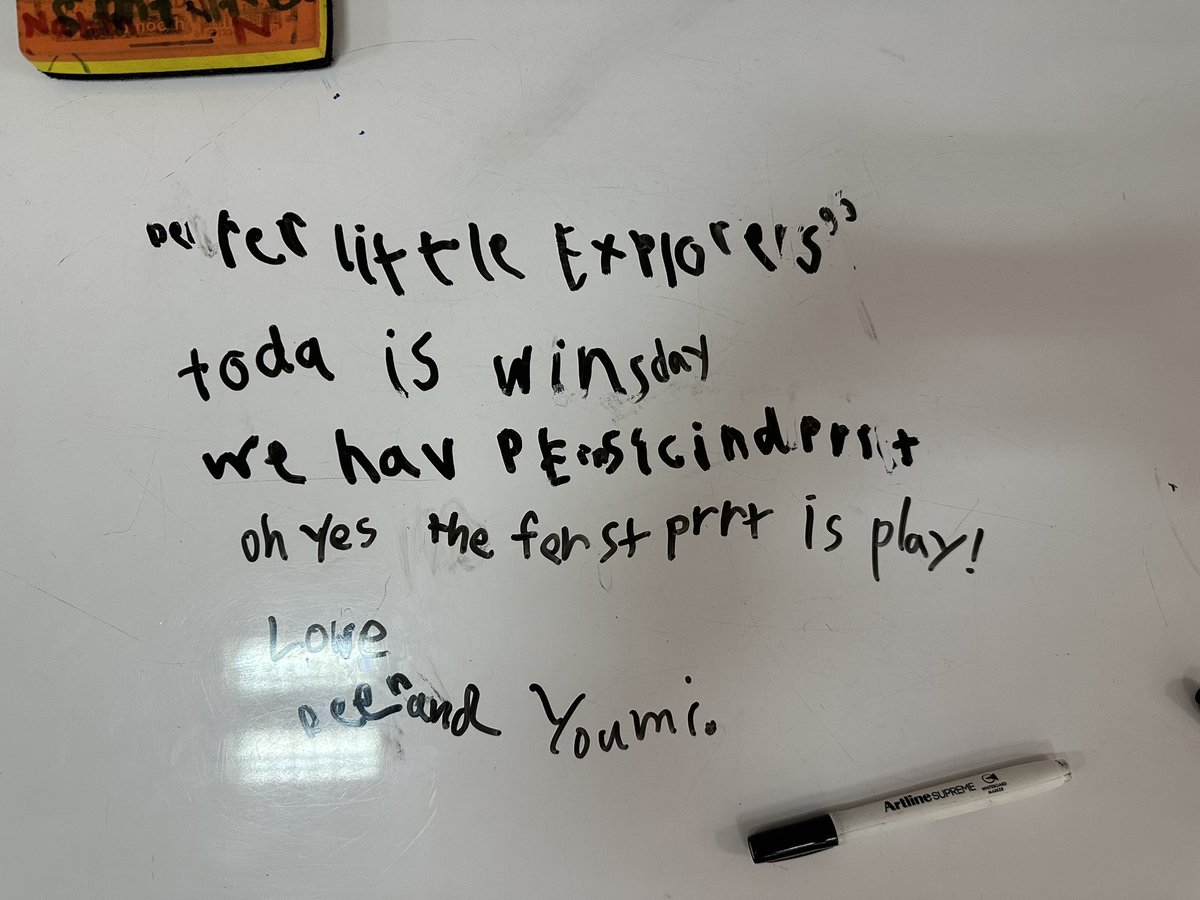 rer little Explorers”
toda is winsday
we hav
oh yes the ferst prrt is play!
Love
and Youmi.
Artline SUPREME
WHITEBOARD
MARKER